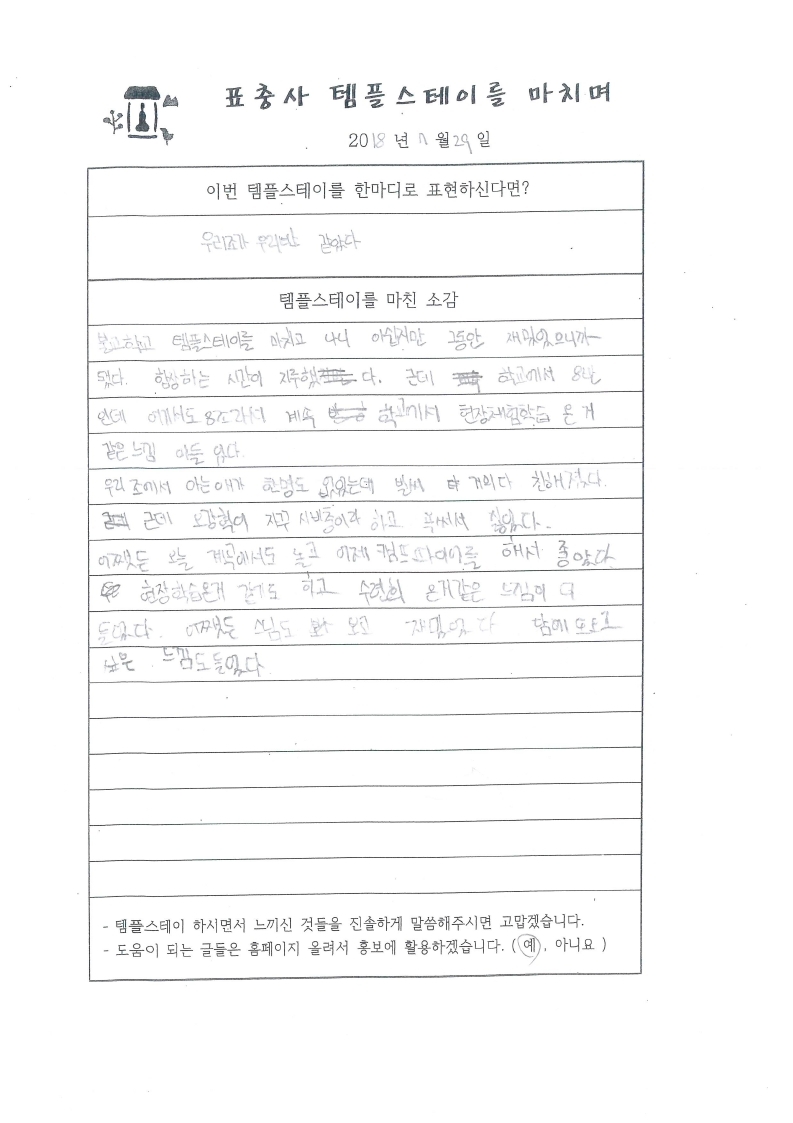 표충사 템플스테이를 마치며
2018년 7월 29일
이번 템플스테이를 한마디로 표현하신다면?
우리조가 우리반 같았다
템플스테이를 마친 소감
불교학교 템플스테이를 마치고 나니 아쉽지만 그동안 재밌었으니까
됐다. 합창하는 시간이 지루했다. 근데 학교에서 8반
인데 여기서도 8조라서 계속 학교에서 현장체험학습 온 거
같은 느낌 이들 었다.
우리 조에서 아는애가 한명도 없었는데 벌써 거의다 친해졌다.
근데 자꾸 하고 싫었다.
어쨋든 오늘 계곡에서도 놀고 어제 캠프파이어를 해서 좋았다
현장학습온거 같기도 하고 수련회 온거같은 느낌이
들었다. 어쨋든 스님도 보고 재밌었다 담에 또오고
싶은 느낌도들었다
- 템플스테이 하시면서 느끼신 것들을 진솔하게 말씀해주시면 고맙겠습니다.
- 도움이 되는 글들은 홈페이지 올려서 홍보에 활용하겠습니다. ( 예, 아니요 )